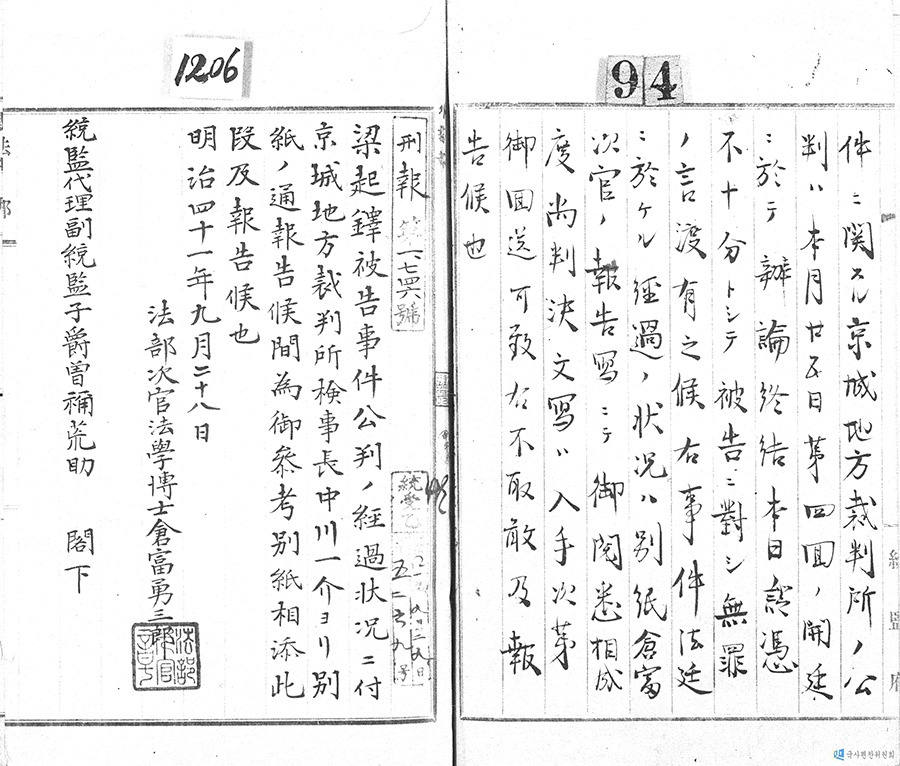 94
件ニ関スル京城地方裁判所ノ公
判ハ本月廿五日第四回ノ開廷
ニ於テ辯論終結本日證憑
不十分トシテ被告ニ對シ無罪
ノ言渡有之候右事件法廷
ニ於ケル経過ノ状况ハ別紙倉富
次官ノ報告寫ニテ御閲悉相成
度尚判決文寫ハ入手次第
御回送可致右不取敢及報
告候也
統監府
1206
刑報第一七四六號
梁起鐸被告事件公判ノ經過状况ニ付
京城地方裁判所検事長中川一介ヨリ別
紙ノ通報告候間為御参考別紙相添此
段及報告候也
明治四十一年九月二十八日
法部次官法學博士倉富勇三郎
統監代理副統監子爵曾禰荒助 閣下
統受乙
국사편찬위원회